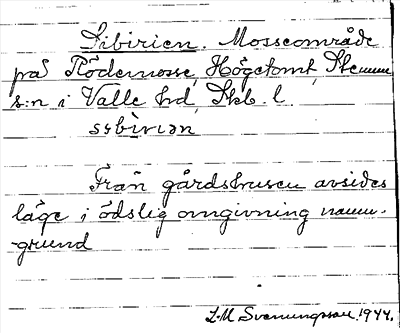 Sibirien. Mosseområde
på Rödemosse, Högetomt, Stenum
s:n i Valle hd, Skb. l.
sɪbìriən
Från gårdshusen avsides
läge i ödslig omgivning namn-
grund
L-M Svenungsson. 1944.